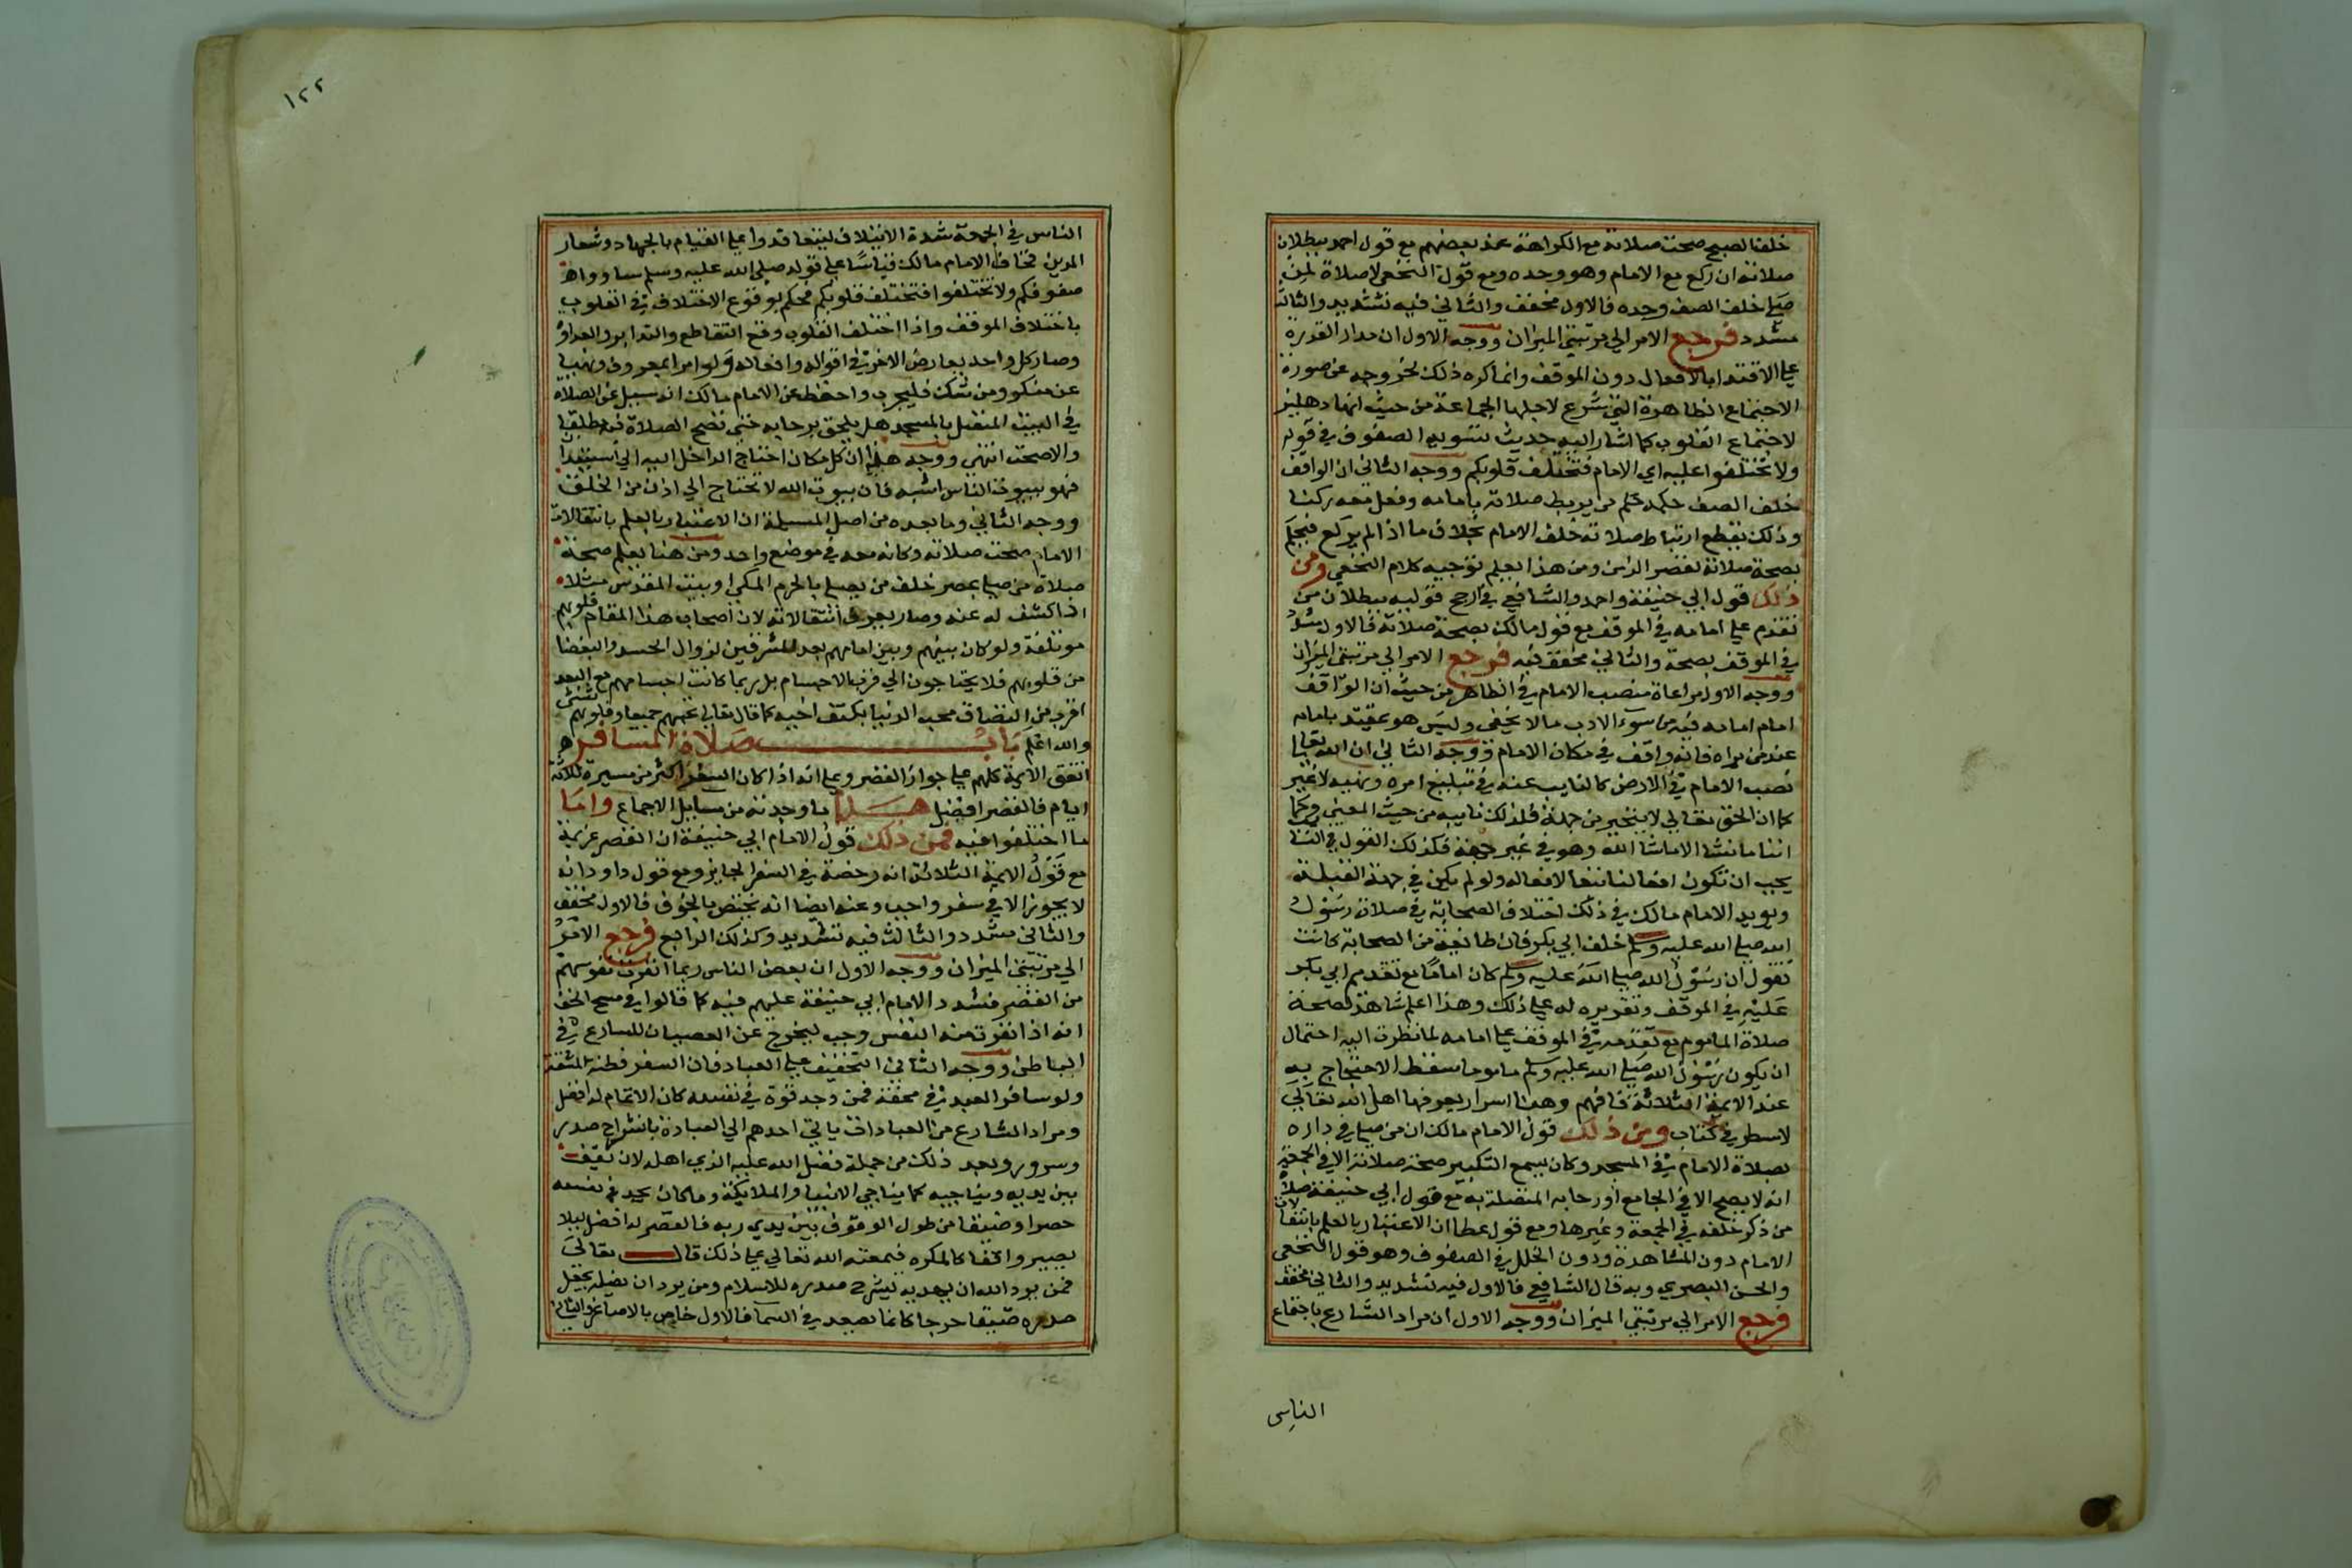 خلف الصبح صحت صلاته مع الكراهة عند بعضهم مع قول احمد ببطلان
صلاته ان ركع مع الامام وهو وحده ومع قول النخعي لا صلاة لمن
صلي خلف الصف وحده فالاول مخفف والثاني فيه تشديد والثالث
مشدد فرجع الامر الي مرتبتي الميزان ووجه الاول ان مدار القدرة
علي الاقتدا بالافعال دون الموقف وانما كره ذلك لخروجه عن صورة
الاجتماع الظاهرة التي شرع لاجلها الجماعة من حيث انها دهليز
لاجتماع القلوب كما اشار اليه حديث تسوية الصفوف في قوله
ولا تختلفوا عليه اي الامام فتختلف قلوبكم ووجه الثاني ان الواقف
خلف الصف حكمه حكم من يربط صلاته بامامه وفعل معه ركنا
وذلك يقطع ارتباط صلاته خلف الامام بخلاف ما اذا لم يركع فيحكم
بصحة صلاته لقصر الزمن ومن هذا يعلم توجيه كلام النخعي ومن
ذلك قول ابي حنيفة واحمد والشافعي في ارجح قوليه ببطلان من
تقدم علي امامه في الموقف مع قول مالك بصحة صلاته فالاول مشدد
في الموقف بصحة والثاني مخفف فيه فرجع الامر الي مرتبتي الميزان
ووجه الاول مراعاة منصب الامام في الظاهر من حيث ان الواقف
امام امامه فيه من سوء الادب ما لا يخفي وليس هو بمقتد بامامه
عند من يراه فانه واقف في مكان الامام ووجه الثاني ان الله تعالي
نصب الامام في الارض كالنايب عنه في تبليغ امره ونهيه لا غير
كما ان الحق تعالي لا يتحيز في جهة فلذلك نايبه من حيث المعني وكما
اننا ما نشا الا ما شا الله وهو في غير جهة فكذلك القول في النا
يجب ان تكون افعالنا تبعا لافعاله ولو لم يكن في جهة القبلة
ويويد الامام مالك في ذلك اختلاف الصحابة في صلاة رسول
الله صلي الله عليه وسلم خلف ابي بكر فان طائفة من الصحابة كانت
تقول ان رسول الله صلي الله عليه وسلم كان اماما مع تقدم ابي بكر
عليه في الموقف وتقريره له علي ذلك وهذا اعلم شاهد لصحة
صلاة الماموم مع تقدمه في الموقف علي امامه لما نظرت اليه احتمال
ان يكون رسول الله صلي الله عليه وسلم ماموما سقط الاحتجاج به
عند الايمة الثلاثة فافهم وهنا اسرار يعرفها اهل الله تعالي
لا تسطر في كتاب ومن ذلك قول الامام مالك ان من صلي في داره
بصلاة الامام في المسجد وكان يسمع التكبير صحة صلاته الا في الجمعة
انه لا يصح الا في الجامع او رحابه المتصلة به مع قول ابي حنيفة صلاة
من ذكر خلفه في الجمعة وغيرها ومع قول عطا ان الاعتبار بالعلم بانتقالات
الامام دون المشاهدة ودون الخلل في الصفوف وهو قول النخعي
والحسن البصري وبه قال الشافعي فالاول فيه تشديد والثاني مخفف
فرجع الامر الي مرتبتي الميزان ووجه الاول ان مراد الشارع باجتماع
الناس
١٢٢
الناس في الجمعة شدة الائتلاف ليتعاقدوا علي القيام بالجهاد وشعار
الدين فخاف الامام مالك قياسا علي قوله صلي الله عليه وسلم ساووا في
صفوفكم ولا تختلفوا فتختلف قلوبكم فحكم بوقوع الاختلاف في القلوب
باختلاف الموقف واذا اختلف القلوب وقع التقاطع والتدابر والعداوة
وصار كل واحد يعارض الاخر في اقواله وافعاله ولو امر بمعروف ونهي
عن منكر ومن شك فليجرب واحفظ عن الامام مالك انه سيل عن الصلاة
في البيت المتصل بالمسجد هل يلحق برحابه حتي تصح الصلاة فيه مطلقا
والا صحت انتهي ووجه هذا ان كل مكان احتاج الداخل اليه الي استيذان
فهو ببيوت الناس اشبه فان بيوت الله لا تحتاج الي اذن من الخلق
ووجه الثاني وما بعده من اصل المسيلة ان الاعتبار بالعلم بانتقالات
الامام صحت صلاته وكانه معه في موضع واحد ومن هنا يعلم صحة
صلاة من صلي بمصر خلف من يصلي بالحرم المكي او بيت المقدس مثلا
اذا كشف له عنه وصار يعرف انتقالاته لان اصحاب هذا المقام قلوبهم
موتلفة ولو كان بينهم وبين امامهم بعد المشرقين لزوال الحسد والبغضا
من قلوبهم فلا يحتاجون الي قرب الاجسام بل ربما كانت اجسامهم مع البعد
اقرب من التصاق محبه الدنيا بكتف اخيه كما قال تعالي تحسبهم جميعا وقلوبهم شتي
والله اعلم باب صلاة المسافر
اتفق الايمة كلهم علي جواز القصر وعلي انه اذا كان السفر اكثر من مسيرة ثلاثة
ايام فالقصر افضل هذا ما وجدته من مسايل الاجماع واما
ما اختلفوا فيه فمن ذلك قول الامام ابي حنيفة ان القصر عزيمة
مع قول الايمة الثلاثة انه رخصة في السفر الجايز ومع قول داود انه
لا يجوز الا في سفر واجب وعنه ايضا انه يختص بالخوف فالاول مخفف
والثاني مشدد والثالث فيه تشديد وكذلك الرابع فرجع الامر
الي مرتبتي الميزان ووجه الاول ان بعض الناس ربما انفرت نفوسهم
من القصر فشدد الامام ابي حنيفة عليهم فيه كما قالوا في مسح الخف
انه اذا نفرت منه النفس وجب ليخرج عن العصيان للشارع في
الباطن ووجه الثاني التخفيف علي العباد فان السفر قطنة المشقة
ولو سافر العبد في محفة فمن وجد قوة في نفسه كان الاتمام له افضل
ومراد الشارع من العبادات ياتي احدهم الي العبادة بانشراح صدر
وسرور وبعد ذلك من جملة فضل الله عليه الذي اهله لان يقف
بين يديه ويناجيه كما يناجي الانبيا والملائكة وما كان يجد في نفسه
حصرا وضيقا من طول الوقوف بين يدي ربه فالقصر له افضل ليلا
يصير واقفا كالمكره فيمقته الله تعالي علي ذلك قال تعالي
فمن يرد الله ان يهديه يشرح صدره للاسلام ومن يرد ان يضله يجعل
صدره ضيقا حرجا كانما يصعد في السما فالاول خاص بالاصاغر والثاني